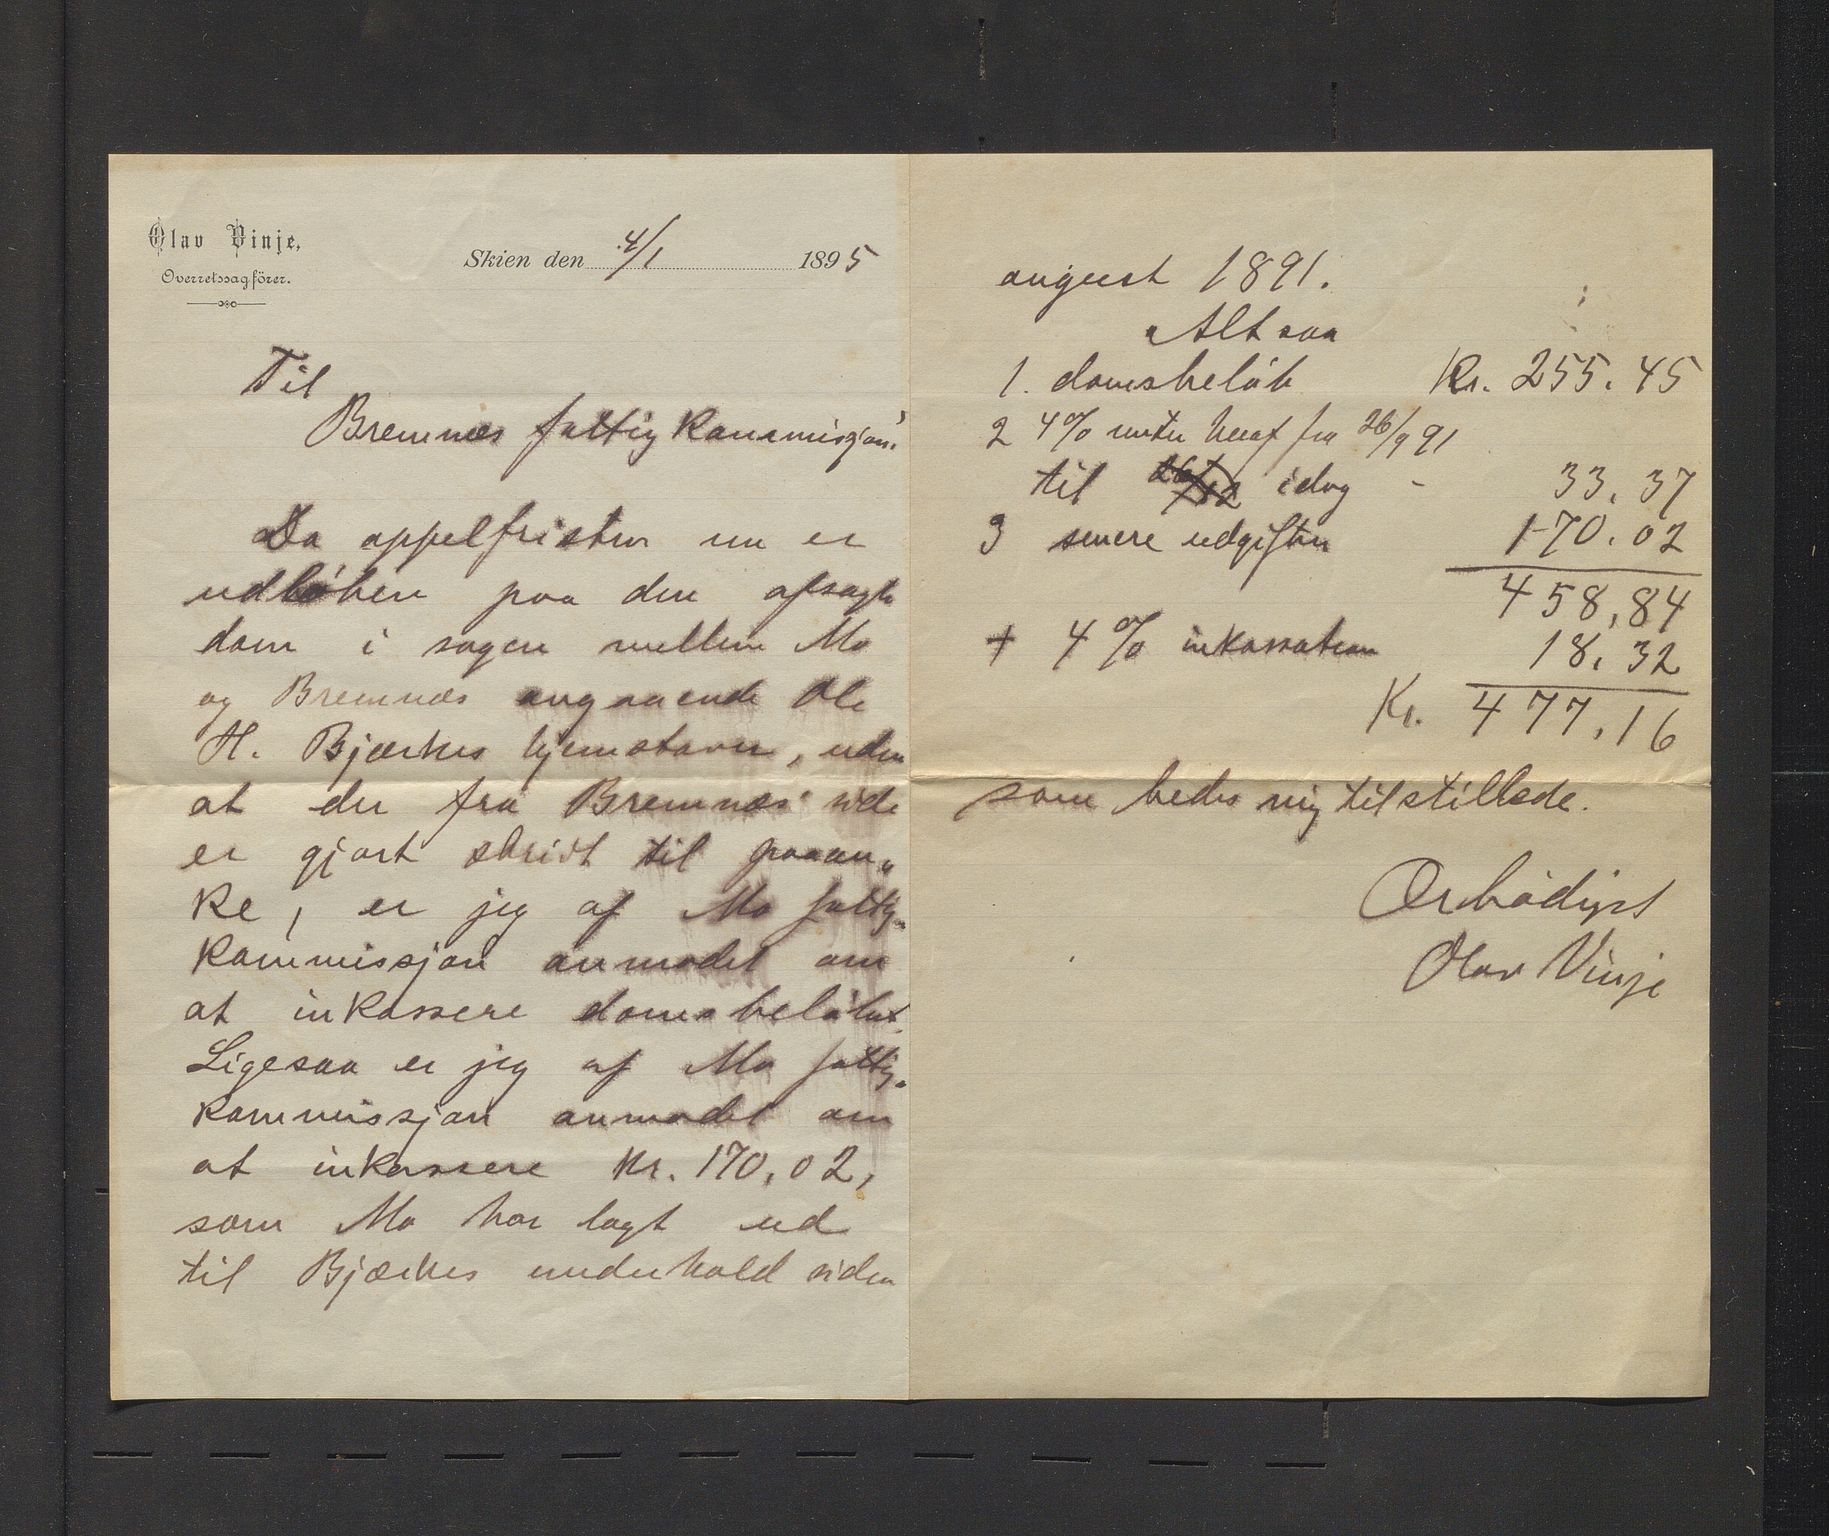 Olav Vinje,
Overretssagförer.
Skien den 4/1 1895
Til
Bremnæs fattigkommissjon!
Da appelfristen nu er
udløben paa den afsagte
dom i sagen mellem Mo
og Bremnæs angaaende Ole
H. Bjærkes hjemstavn, uden
at der fra Bremnæs' side
er gjort skridt til paaan„
ke, er jeg af Mo fattig„
kommissjon anmodet om
at inkassere domsbeløbet.
Ligesaa er jeg af Mo fattig„
kommissjon anmodet om
at inkassere Kr. 170,02,
som Mo har lagt ud
til Bjærkes underhold siden
august 1891.
Altsaa
1. domsbeløb Kr. 255.45
2 4% renter heraf fra 26/9 91
til idag - 33.37
3 senere udgifter 170.02
458,84
+ 4% inkassation 18.32
Kr. 477.16
som bedes mig tilstillede.
Ærbødigst
Olav Vinje